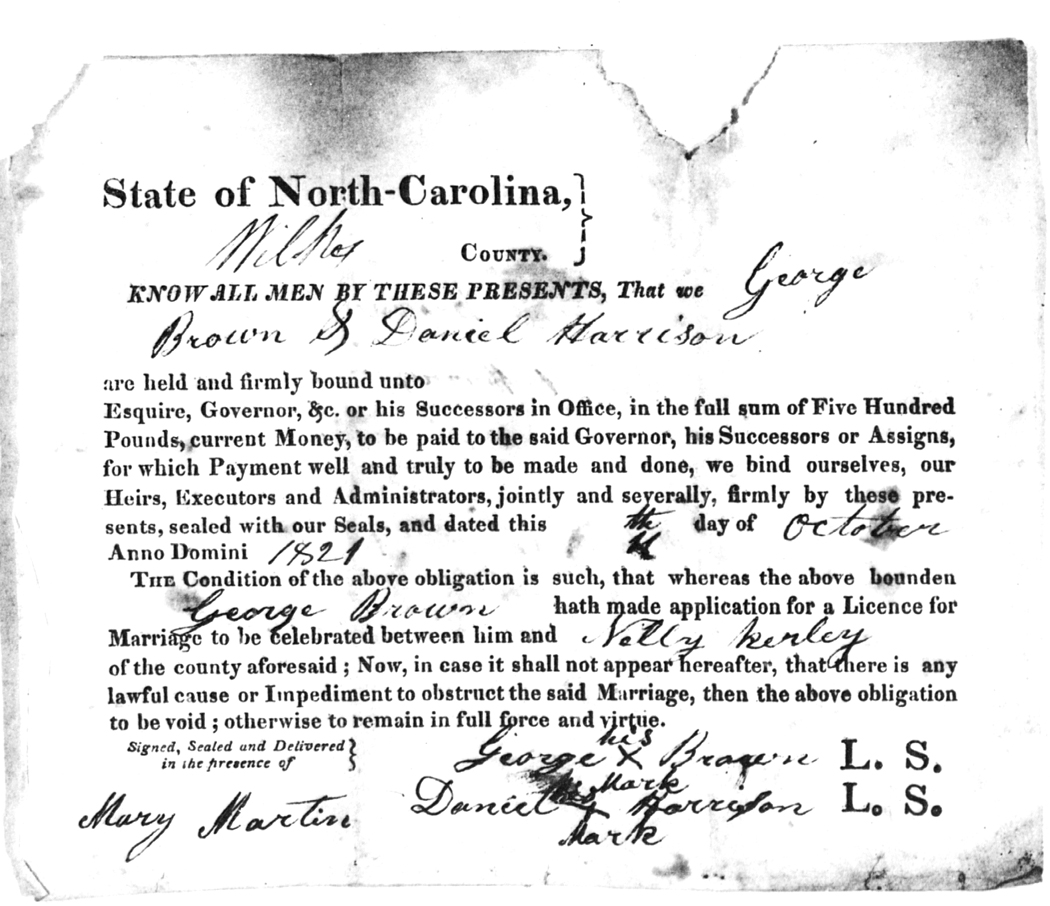 State of North-Carolina,
Wilkes COUNTY.
KNOW ALL MEN BY THESE PRESENTS, That we George
Brown & Daniel Harrison
are held and firmly bound unto
Esquire, Governor, &c. or his Successors in Office, in the full sum of Five Hundred
Pounds, current Money, to be paid to the said Governor, his Successors or Assigns,
for which Payment well and truly to be made and done, we bind ourselves, our
Heirs, Executors and Administrators, jointly and severally, firmly by these pre-
sents, sealed with our Seals, and dated this th day of October
Anno Domini 1821
THE Condition of the above obligation is such, that whereas the above bounden
George Brown hath made application for a Licence for
Marriage to be celebrated between him and Nelly Kerley
of the county aforesaid ; Now, in case it shall not appear hereafter, that there is any
lawful cause or Impediment to obstruct the said Marriage, then the above obligation
to be void ; otherwise to remain in full force and virtue.
Signed, Sealed and Delivered
in the presence of
his
George X Brown L. S.
Mark
Daniel X Harrison L. S.
Mark
Mary Martin